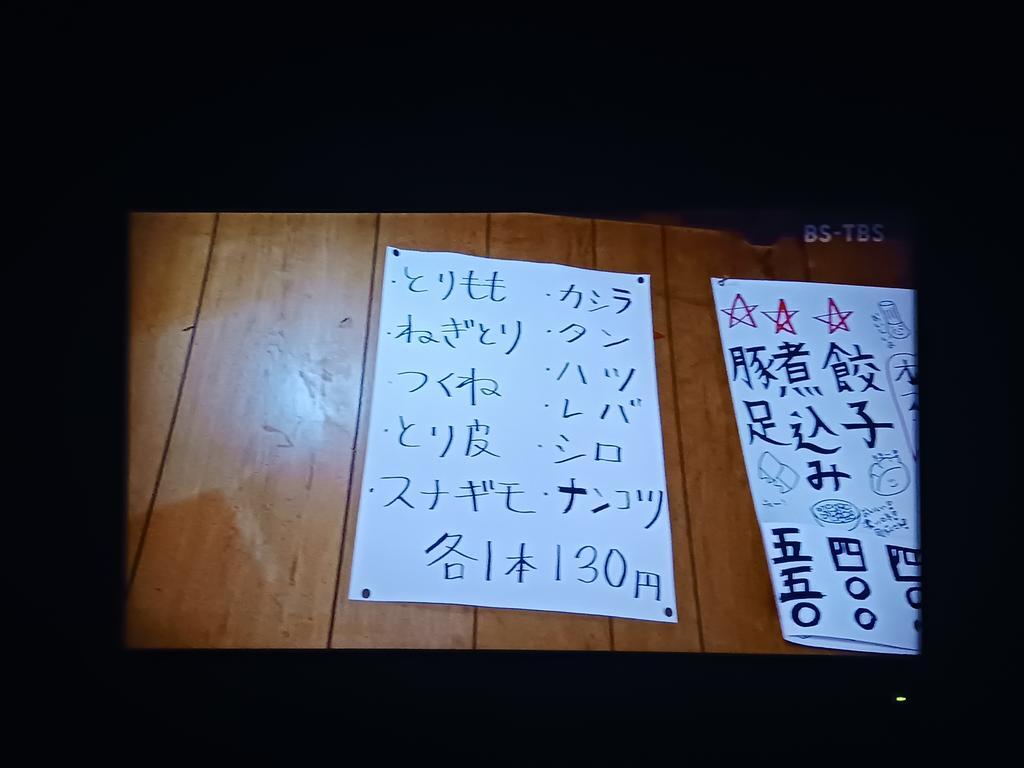 BS-TBS
・とりもも
・ねぎとり
・つくね
・とり皮
・スナギモ
・カシラ
・タン
・ハツ
・レバ
・シロ
・ナンコツ
各1本130円
餃子
四〇〇
煮込み
四〇〇
豚足
五五〇